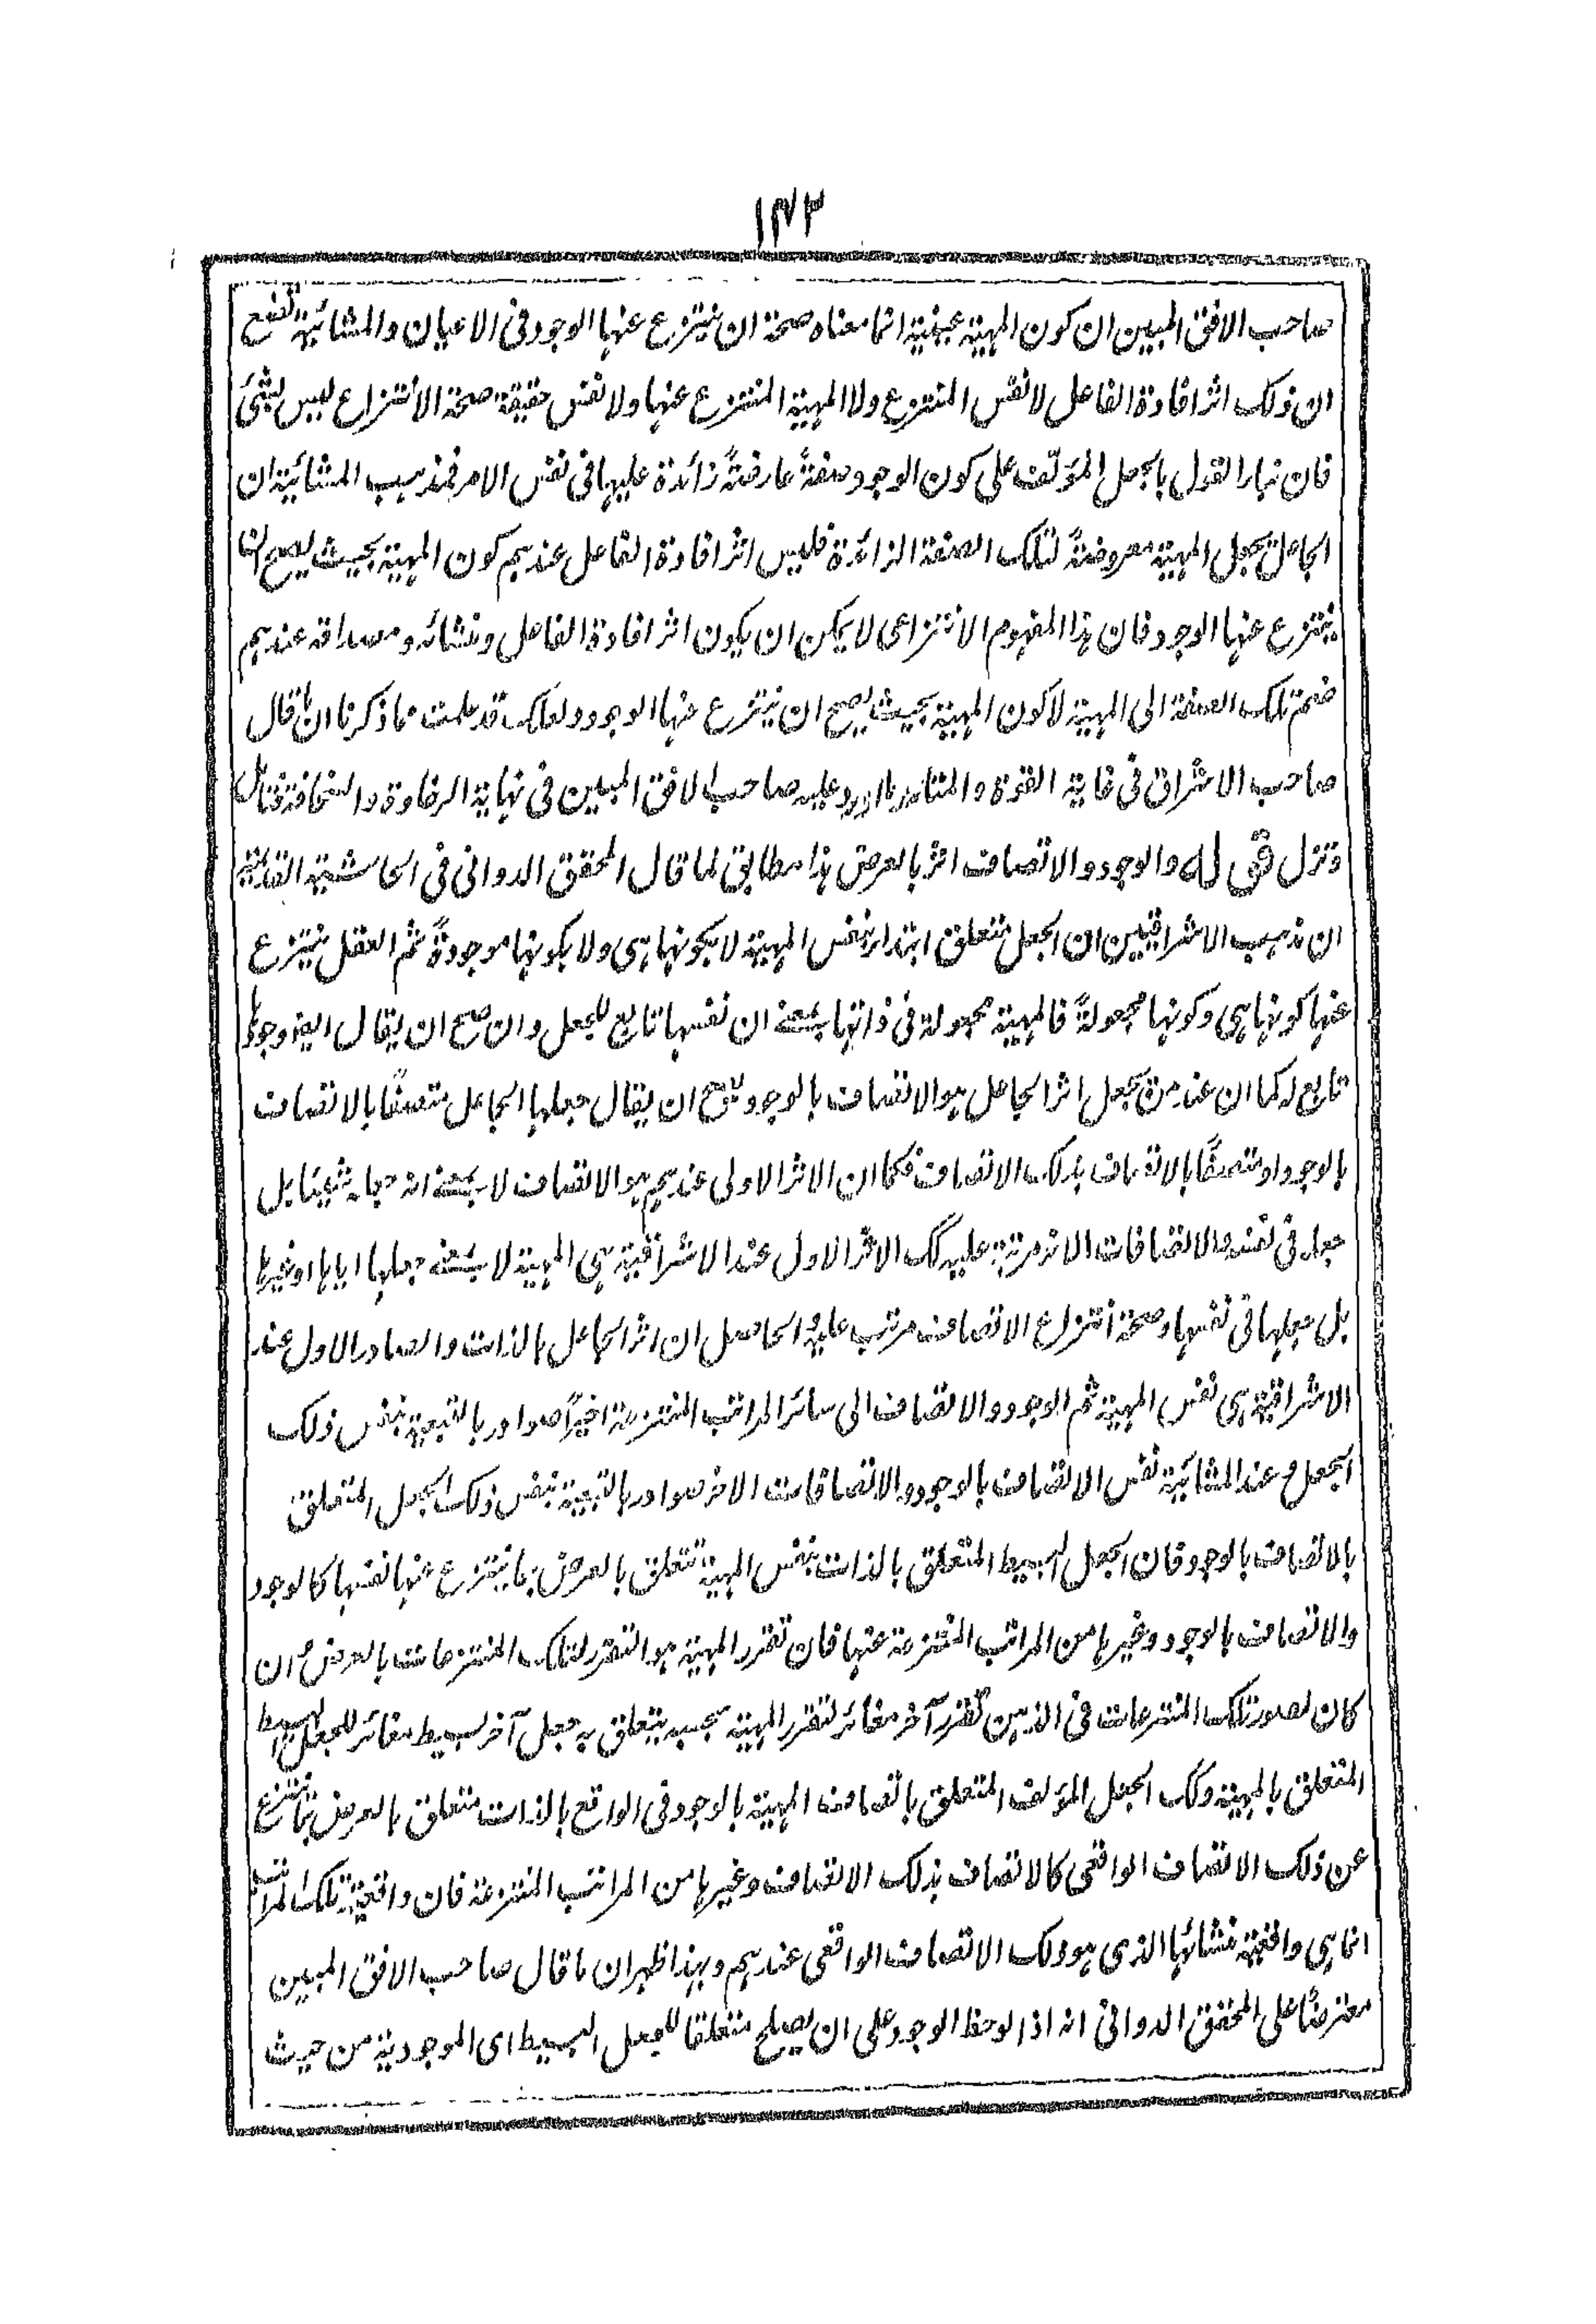 ١٤٣
صاحب الافق المبين ان كون المهية عينية انما معناه صحة ان ينتزع عنها الوجود فى الاعيان والمشائية تضع
ان ذلك اثر افادة الفاعل لا نفس المنتزع ولا المهية المنتزع عنها ولا نفس حقيقة صحة الانتزاع ليس بشئ
فان بناء القول بالجعل المؤلف على كون الوجود صفةً عارضةً زائدة عليها فى نفس الامر فمذهب المشائية ان
الجاعل يجعل المهية معروضةً لتلك الصفة الزائدة فليس اثر افادة الفاعل عندهم كون المهية بحيث يصح ان
ينتزع عنها الوجود فان هذا المفهوم الانتزاعى لا يمكن ان يكون اثر افادة الفاعل ومنشائه ومصداقه عندهم
ضم تلك الصفة الى المهية لا كون المهية بحيث يصح ان ينتزع عنها الوجود ولعلك قد علمت مما ذكرنا ان ما قال
صاحب الاشراق فى غاية القوة والمتانة وما اورد عليه صاحب الافق المبين فى نهاية الرخاوة والسخافة فتأمل
وتزل قوله والوجود والاتصاف اثر بالعرض هذا مطابق لما قال المحقق الدوانى فى الحاشية القديمة
ان مذهب الاشراقيين ان الجعل متعلق ابتداء بنفس المهية لا بكونها هى ولا بكونها موجودةً ثم العقل ينتزع
عنها كونها هى وكونها مجعولةً فالمهية مجعولة فى ذاتها بمعنى ان نفسها تابع للجعل وان صح ان يقال ايضا وجودها
تابع له كما ان عند من يجعل اثر الجاعل هو الاتصاف بالوجود يصح ان يقال جعلها الجاعل متصفًا بالاتصاف
بالوجود او متصفًا بالاتصاف بذلك الاتصاف فكما ان الاثر الاولى عندهم هو الاتصاف لا بمعنى انه جعله شيئا بل
جعله فى نفسه والاتصافات الاخر مرتبة عليه كك الاثر الاول عند الاشراقية هى المهية لا بمعنى جعلها اياها او غيرها
بل جعلها فى نفسها وصحة انتزاع الاتصاف مرتب عليه والحاصل ان اثر الجاعل بالذات والصادر الاول عند
الاشراقية هى نفس المهية ثم الوجود والاتصاف الى سائر المراتب المنتزعة اخيراً صوادر بالتبعية بنفس ذلك
الجعل وعند المشائية نفس الاتصاف بالوجود والاتصافات الاخر صوادر بالتبعية بنفس ذلك الجعل المتعلق
بالاتصاف بالوجود فان الجعل البسيط المتعلق بالذات بنفس المهية متعلق بالعرض بما ينتزع عنها نفسها كالوجود
والاتصاف بالوجود وغيرها من المراتب المنتزعة عنها فان تقرر المهية هو التقرر لتلك المنتزعات بالعرض وان
كان لصور تلك المنتزعات فى الذهن تقرر آخر مغائر لتقرر المهية بحسبه يتعلق به جعل آخر بسيط مغائر للجعل البسيط
المتعلق بالمهية وكك الجعل المؤلف المتعلق باتصاف المهية بالوجود فى الواقع بالذات متعلق بالعرض بما ينتزع
عن ذلك الاتصاف الواقعى كالاتصاف بذلك الاتصاف وغيرها من المراتب المنتزعة فان واقعية تلك المراتب
انما هى واقعية منشائها الذى هو ذلك الاتصاف الواقعى عندهم وبهذا ظهر ان ما قال صاحب الافق المبين
معترضًا على المحقق الدوانى انه اذا لوحظ الوجود على ان يصلح متعلقا للجعل البسيط اى الموجودية من حيث